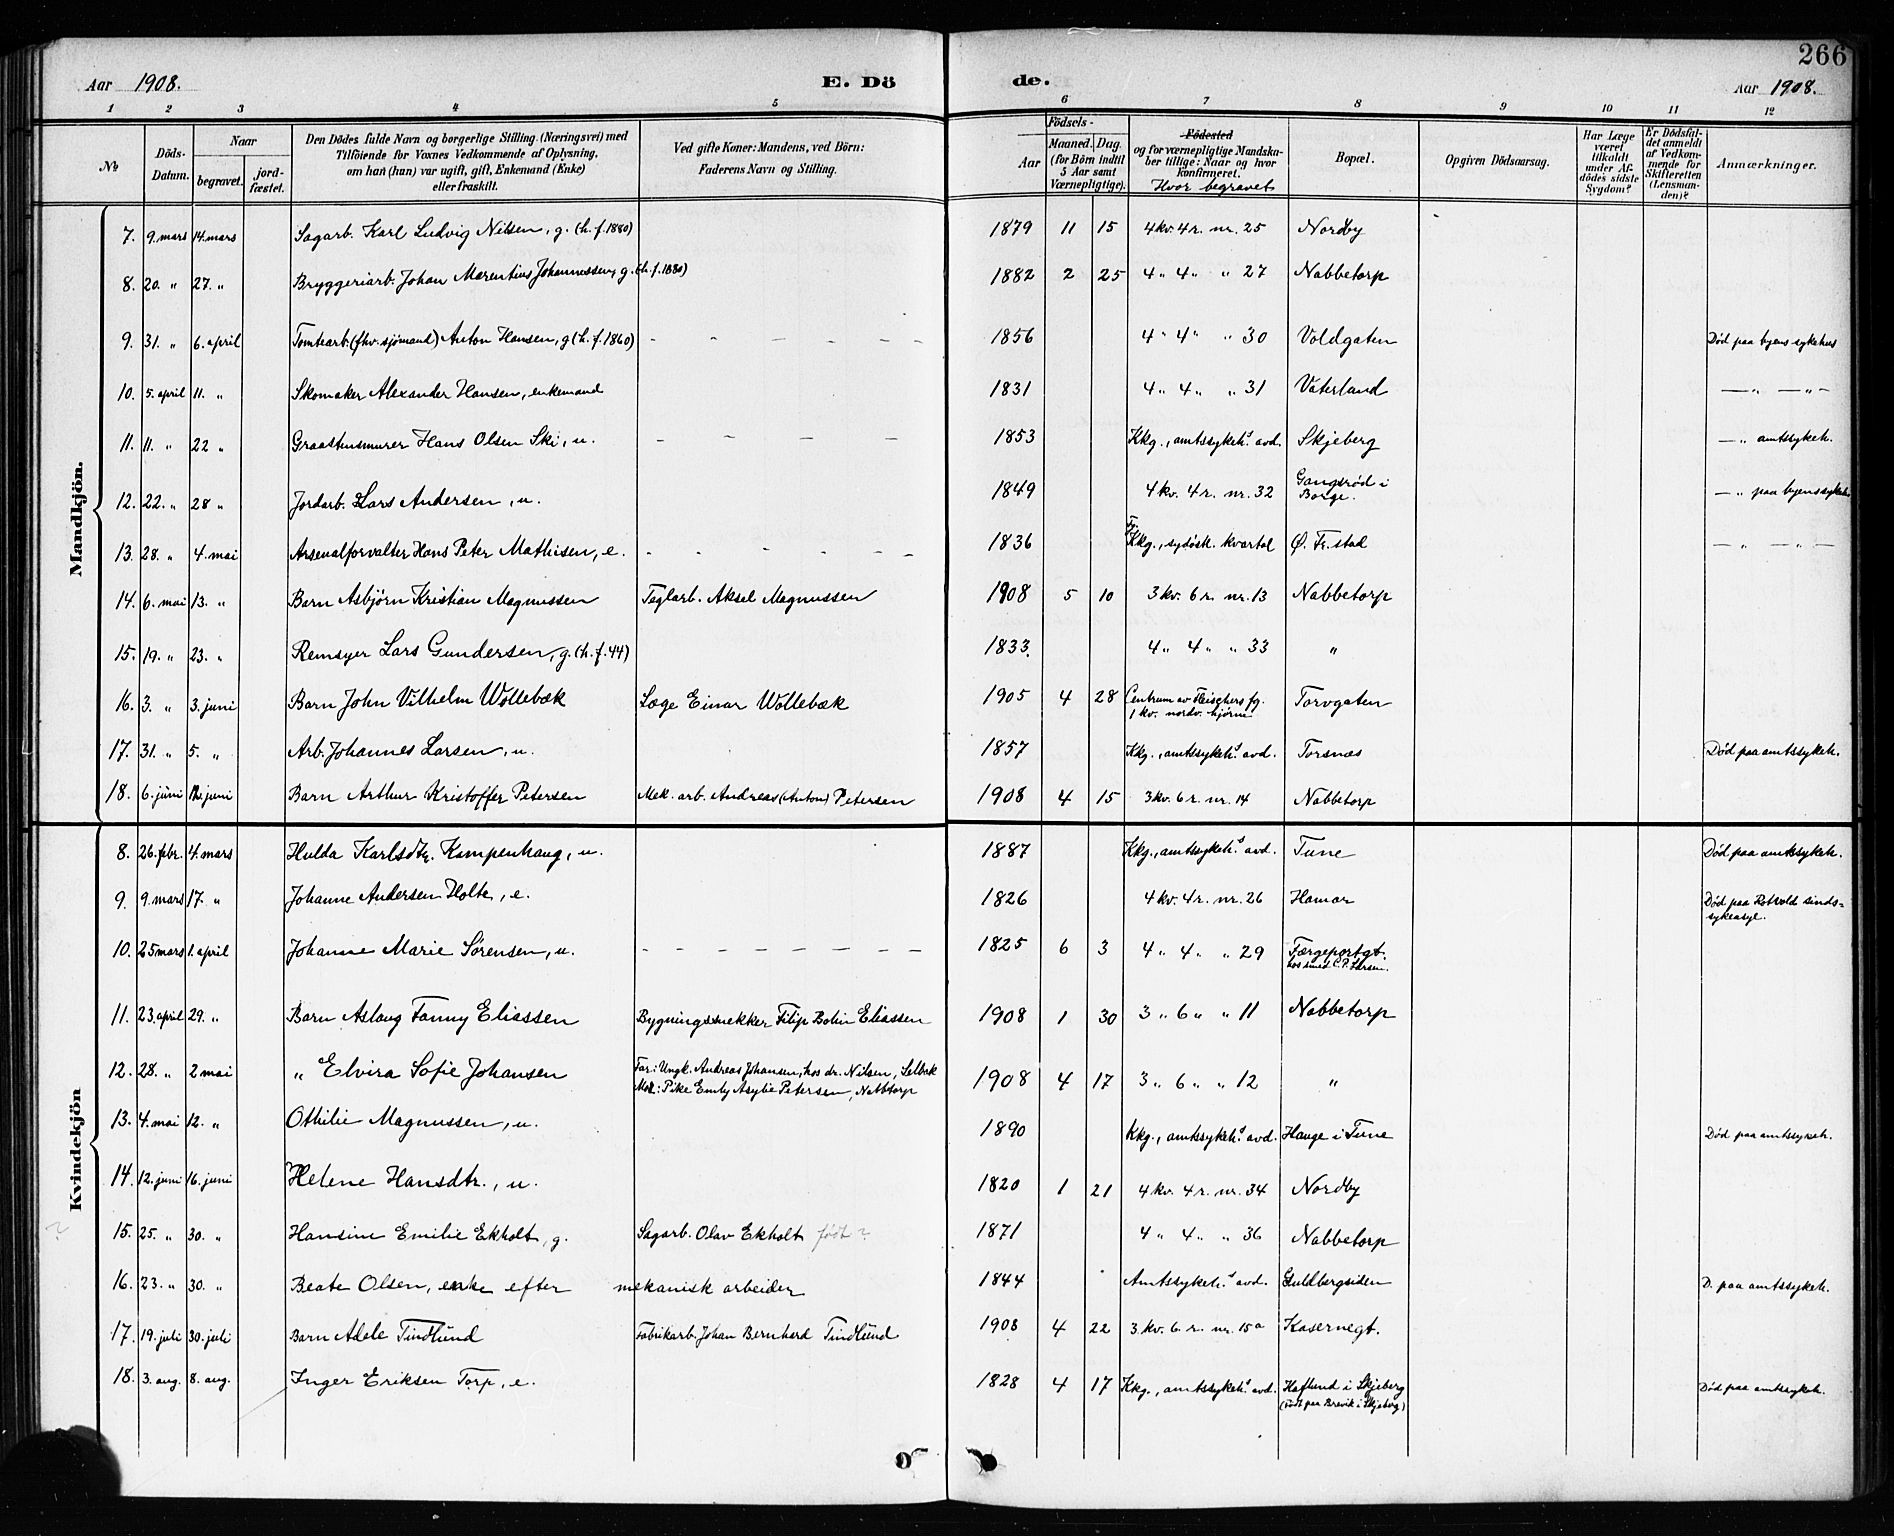 266
Aar 1908. E. Dö de. Aar 1908.
1 2 3 4 5 6 7 8 9 10 11 12
№ Döds-Datum. Naar begravet. jord-fæstet. Den Dödes fulde Navn og borgerlige Stilling (Næringsvei) med Tilföiende for Voxnes Vedkommende af Oplysning, om han (hun) var ugift, gift, Enkemand (Enke) eller fraskilt. Ved gifte Koner: Mandens, ved Börn: Faderens Navn og Stilling. Födsels- Aar Maaned. Dag. (for Börn indtil 5 Aar samt Værnepligtige). Födested og for værnepligtige Mandskaber tillige: Naar og hvor konfirmeret. Hvor begravet Bopæl. Opgiven Dödsaarsag. Har Læge været tilkaldt under Afdödes sidste Sygdom? Er Dödsfaldet anmeldt af Vedkommende for Skifteretten (Lensmanden)? Anmærkninger.
Mandkjön.
7. 9. mars 14. mars Sagarb. Karl Ludvig Nilsen, g. (h. f. 1880) 1879 11 15 4 kv. 4 r. nr. 25 Nordby
8. 20. " 27. " Bryggeriarb. Johan Marentius Johannessen, g. (h. f. 1880) 1882 2 25 4 " 4 " " 27 Nabbetorp
9. 31. " 6. april Tomtearb. (fhv. sjømand) Anton Hansen, g (h. f. 1860) - - - - - - 1856 4 " 4 " " 30 Voldgaten Død paa byens sykehus
10. 5. april 11. " Skomaker Alexander Hansen, enkemand 1831 4 " 4 " " 31 Vaterland — " — " —
11. 11. " 22 " Graastensmurer Hans Olsen Ski, u. - - - - 1853 Kkg., amtssykeh.s avd. Skjeberg — " amtssykeh.
12. 22. " 28 " Jordarb. Lars Andersen, u. 1849 4 kv. 4 r. nr. 32 Gangsrød i Borge. — " paa byens sykehus
13. 28. " 4. mai Arsenalforvalter Hans Peter Mathisen, e. - - - - - 1836 Fr. Kkg., sydøstk. kvartal Ø. Fr.stad — " — " —
14. 6. mai 13. " Barn Asbjørn Kristian Magnussen Teglarb. Aksel Magnussen 1908 5 10 3 kv. 6 r. nr. 13 Nabbetorp
15. 19. " 23. " Remsyer Lars Gundersen, g. (h. f. 44) 1833. 4 " 4 " " 33 "
16. 3. " 3. juni Barn John Vilhelm Wollebæk Læge Einar Wollebæk 1905 4 28 Centrum av Fleischers fg. 1 kv. nordv. hjørne Torvgaten
17. 31. " 5. " Arb. Johannes Larsen, u. 1857 Kkg., amtssykeh.s avd. Torsnæs Død paa amtssykeh.
18. 6. juni 12. juni Barn Arthur Kristoffer Petersen Mek. arb. Andreas (Anton) Petersen 1908 4 15 3 kv. 6 r. nr. 14 Nabbetorp
Kvindekjön
8. 26. febr. 4. mars Hulda Karlsdtr. Kampenhaug, u. 1887 Kkg., amtssykeh.s avd. Tune Død paa amtssykeh.
9. 9. mars 17. " Johanne Andersen Holte, e. 1826 4 kv. 4 r. nr. 26 Hamar Død paa Rotvold sinds-sykeasyl.
10. 25 mars 1. april Johanne Marie Sørensen, u. - - - - - - - 1825 6 3 4 " 4 " " 29 Færgeportgt. hos smed C. P. Larsen.
11. 23. april 29. " Barn Aslaug Fanny Eliassen Bygningssnekker Filip Bolin Eliassen 1908 1 30 3 " 6 " " 11 Nabbetorp
12. 28. " 2 mai " Elvira Sofie Johansen Far: Ungk. Andreas Johansen, hos dr. Nilsen, Selbak
Mor: Pike Emly Asylie Petersen, Nabbtorp 1908 4 17 3 " 6 " " 12 "
13. 4. mai 12. " Othilie Magnussen, u. 1890 Kkg., amtssykeh.s avd. Hauge i Tune Død paa amtssykeh.
14. 12. juni 16. juni Helene Hansdtr., u. 1820 1 21 4 kv. 4 r. nr. 34 Nordby
? 15. 25. " 30. " Hansine Emilie Ekholt, g. Sagarb. Olav Ekholt født? 1871 4 " 4 " " 36 Nabbetorp
16. 23. " 30. " Beate Olsen, enke efter mekanisk arbeider 1844 Amtssykeh.s avd. Guldbergsiden D. paa amtssykeh.
17. 19. juli 30. juli Barn Adele Tindlund Fabrikarb. Johan Bernhard Tindlund 1908 4 22 3. kv. 6. r. nr. 15a Kasernegt.
18. 3. aug. 8. aug. Inger Eriksen Torp, e. 1828 4 17 Kkg., amtssykeh.s avd. Haflund i Skjeberg (Født paa Brevik i Skjeberg) Død paa amtssykeh.